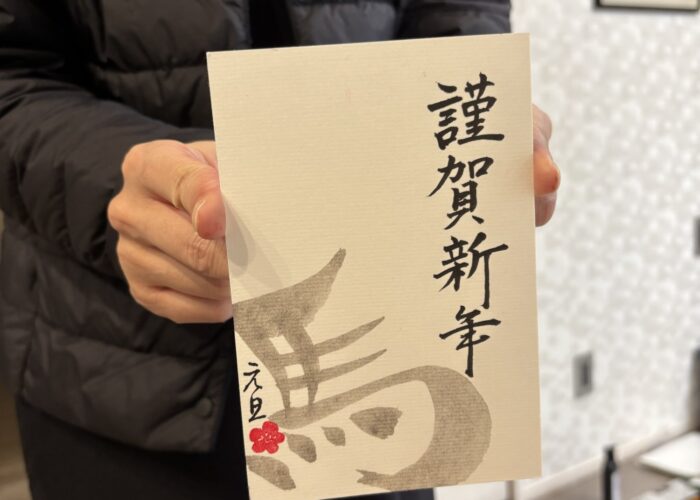 謹賀新年
馬
元旦